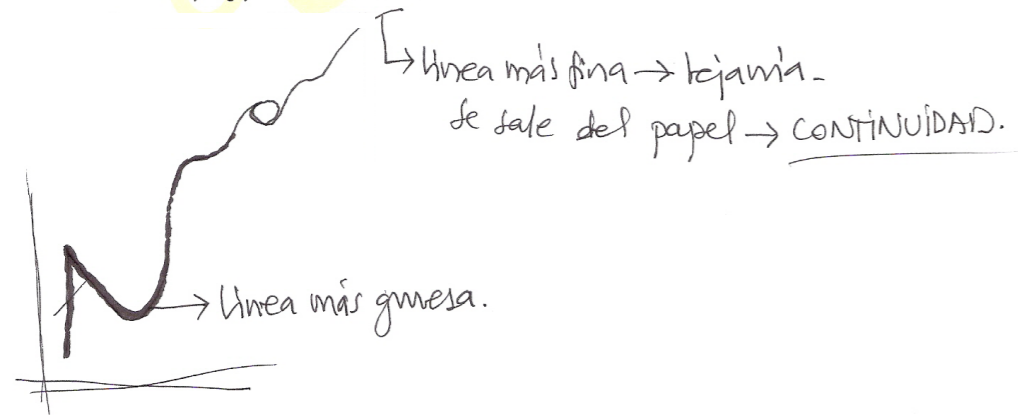 Línea más fina → lejanía.
Se sale del papel → CONTINUIDAD.
→ Línea más gruesa.